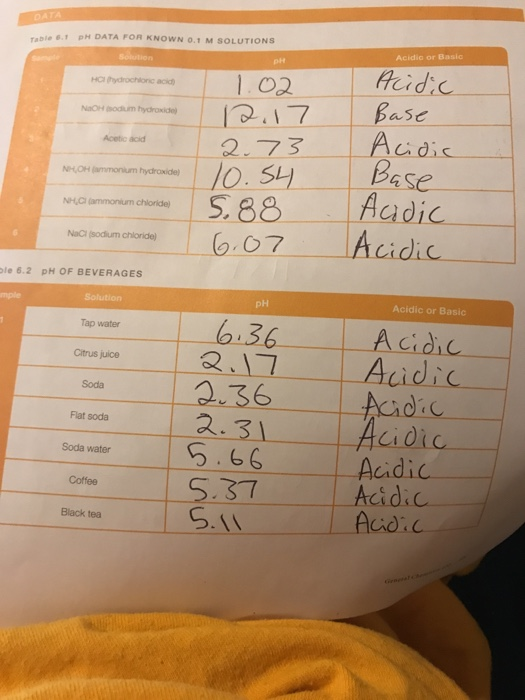 DATA
Table 6.1 pH DATA FOR KNOWN 0.1 M SOLUTIONS
Sample Solution pH Acidic or Basic
HCl (hydrochloric acid) 1.02 Acidic
NaOH (sodium hydroxide) 12.17 Base
Acetic acid 2.73 Acidic
NH4OH (ammonium hydroxide) 10.54 Base
NH4Cl (ammonium chloride) 5.88 Acidic
6 NaCl (sodium chloride) 6.07 Acidic
ble 6.2 pH OF BEVERAGES
mple Solution pH Acidic or Basic
Tap water 6.36 Acidic
Citrus juice 2.17 Acidic
Soda 2.36 Acidic
Flat soda 2.31 Acidic
Soda water 5.66 Acidic
Coffee 5.37 Acidic
Black tea 5.11 Acidic